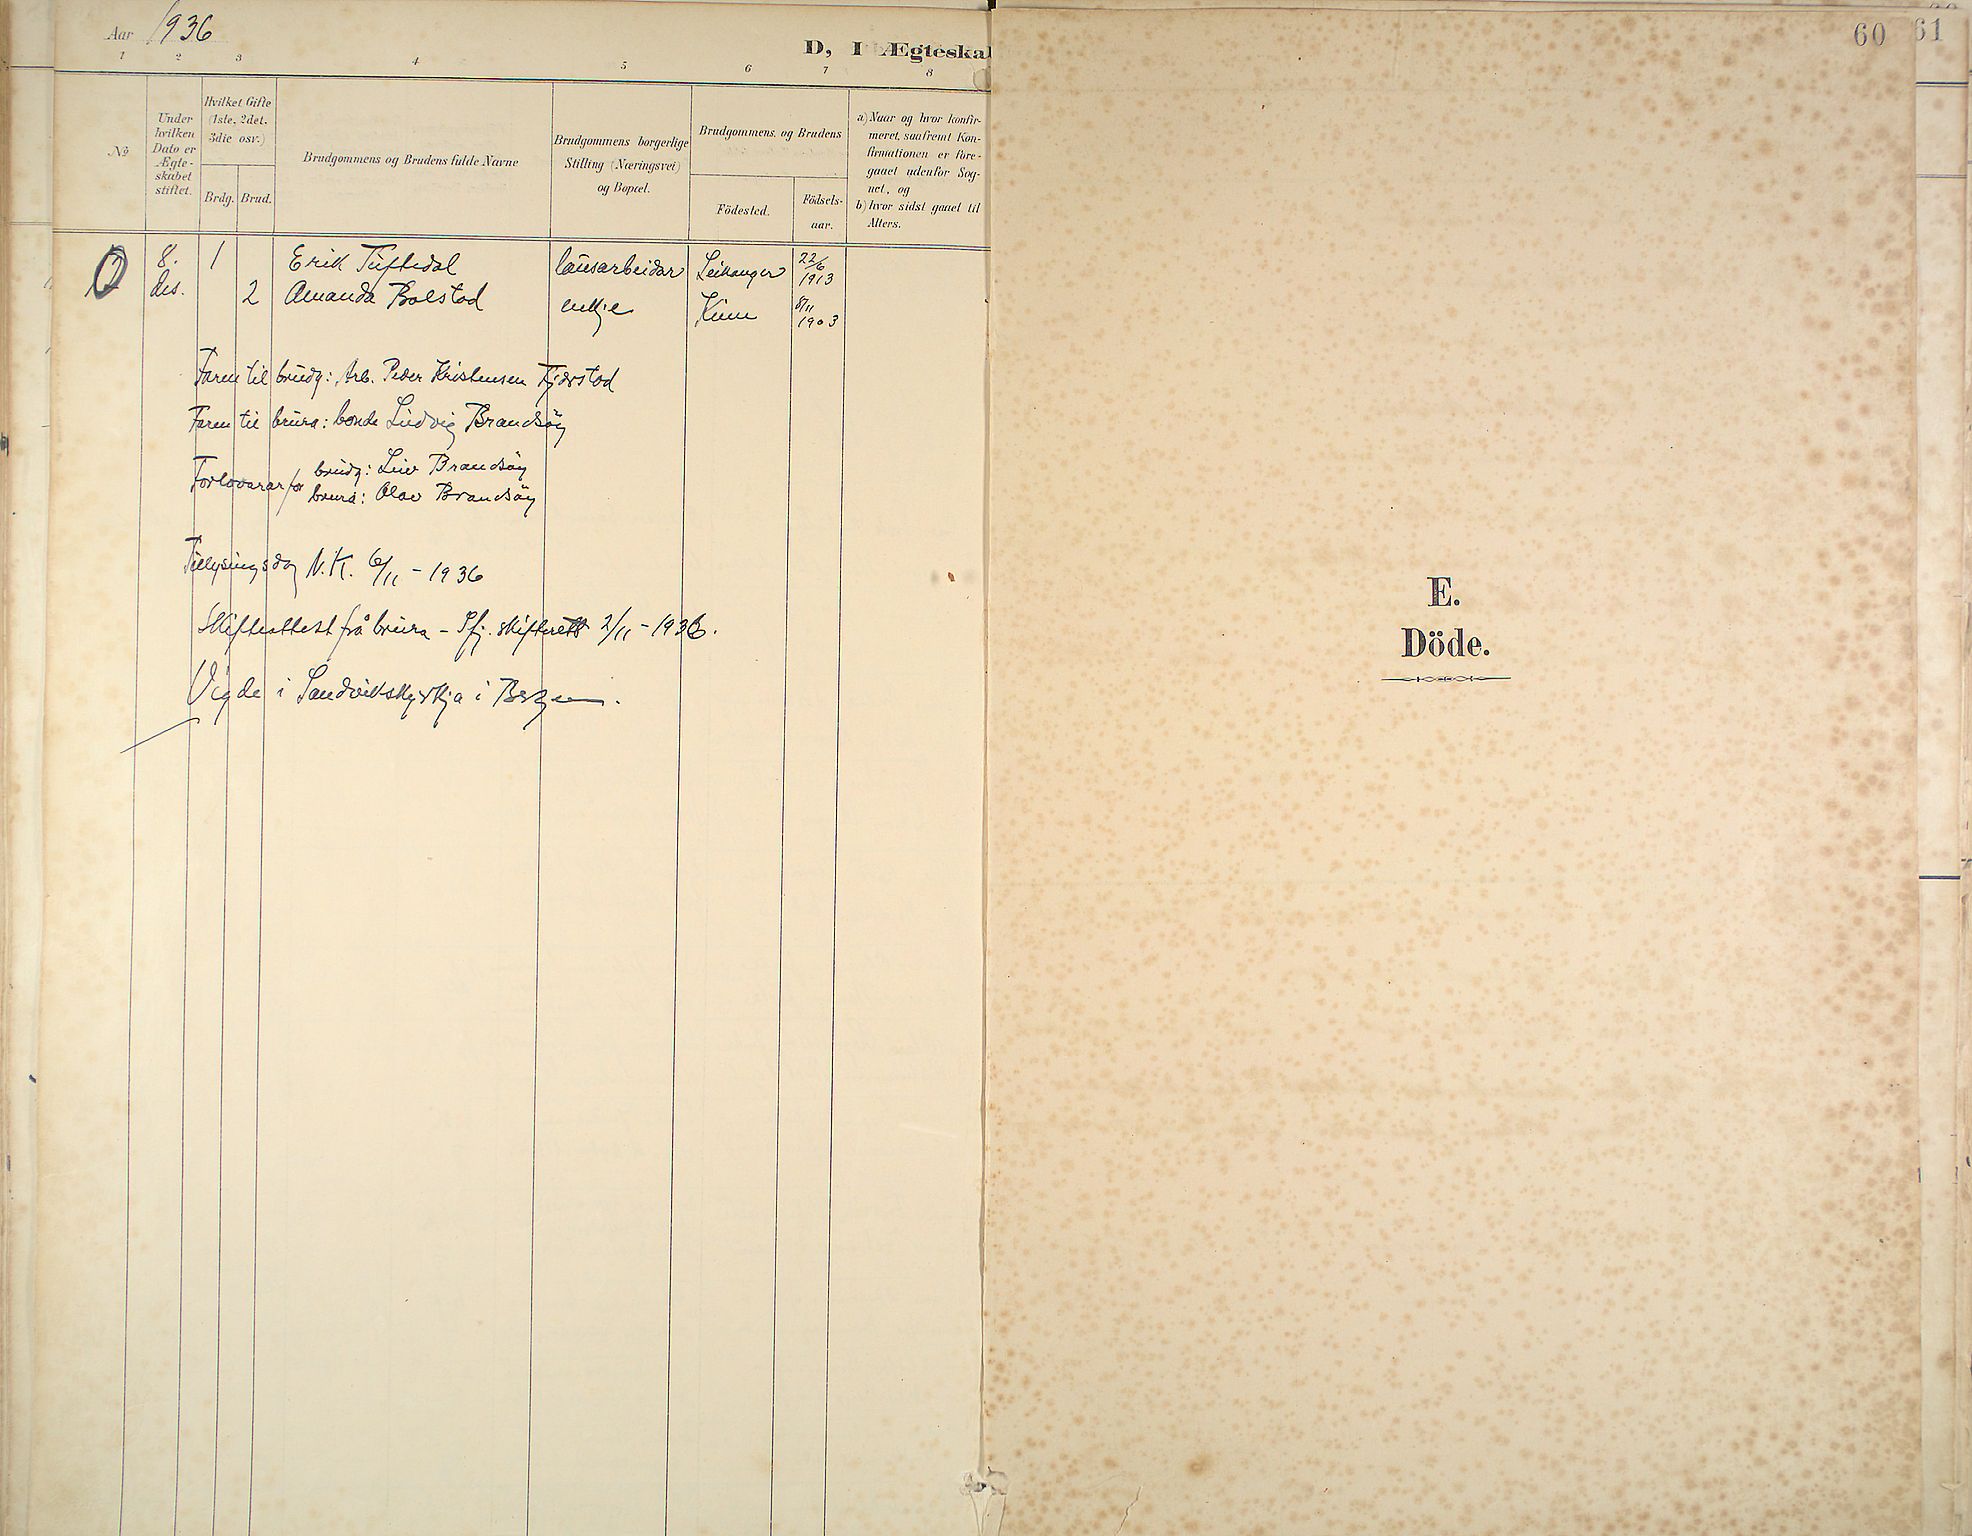 Aar 1936
D, I Ægteskab
1 2 3 4 5 6 7 8
№
Under hvilken Dato er Ægte-skabet stiftet.
Hvilket Gifte (1ste, 2det, 3die osv.)
Brdg. Brud.
Brudgommens og Brudens fulde Navne
Brudgommens borgerlige Stilling (Næringsvei) og Bopæl.
Brudgommens og Brudens
Födested.
Födsels-aar.
a) Naar og hvor konfir-
meret, saafremt Kon-
firmationen er fore-
gaaet udenfor Sog-
net, og
b) hvor sidst gaaet til
Alters.
8. des. 1 Erik Tuftedal lausarbeidar Leikanger 22/6 1913
2 Amanda Bolstad enkje Kinn 8/11 1903
Faren til brudg: Arb. Peder Kristensen Fjærstad
Faren til brura: bonde Ludvig Brandsöy
Forlovarar for brudg: Leiv Brandsöy
brura: Olav Brandsöy
Tillysingsdag N.K. 6/11 - 1936
Skifteattest frå brura - Sfj. skifterett 2/11 - 1936.
Vigde i Sandvikskyrkja i Bergen.
60
61
E.
Döde.